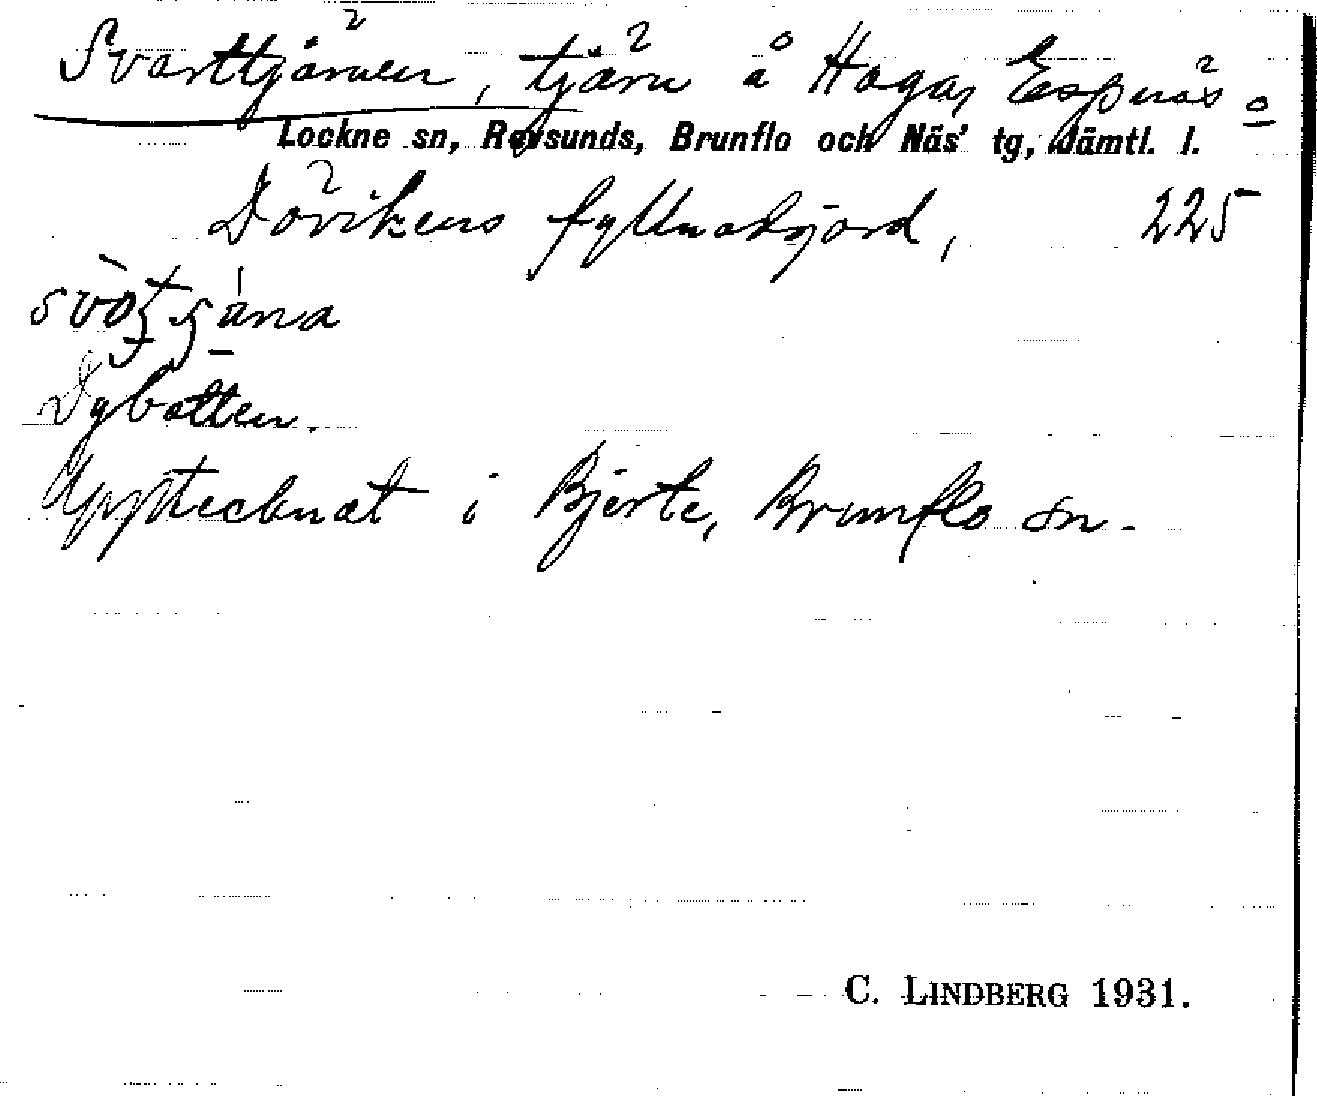 Svarttjärnen, tjärn å Haga, Espnäs o
Lockne sn, Revsunds, Brunflo och Näs' tg, Jämtl. l.
Dövikens fyllnadsjord, 225
Dybotten.
Upptecknat i Bjerte, Brunflo sn.
C. LINDBERG 1931.